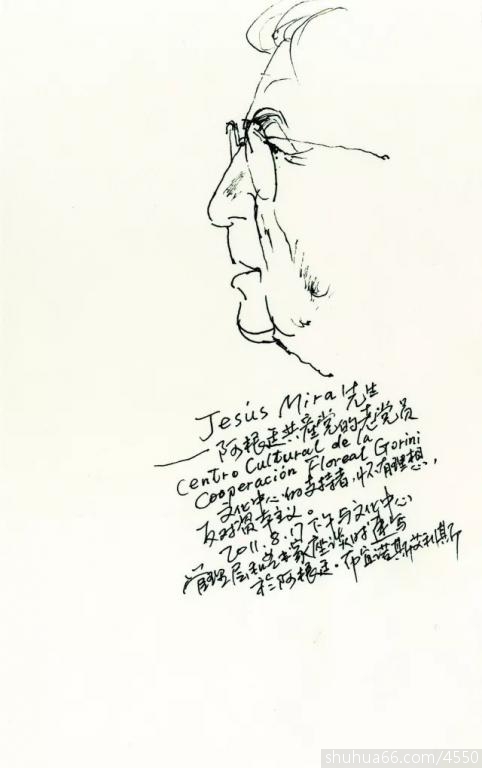 Jesús Mira 先生
——阿根廷共产党的老党员
Centro Cultural de la
Cooperación Floreal Gorini
文化中心的支持者,怀有理想,
反对资本主义。
2011.8.17下午与文化中心
管理层和艺术家座谈时速写
于阿根廷·布宜诺斯艾利斯
shuhua66.com/4550